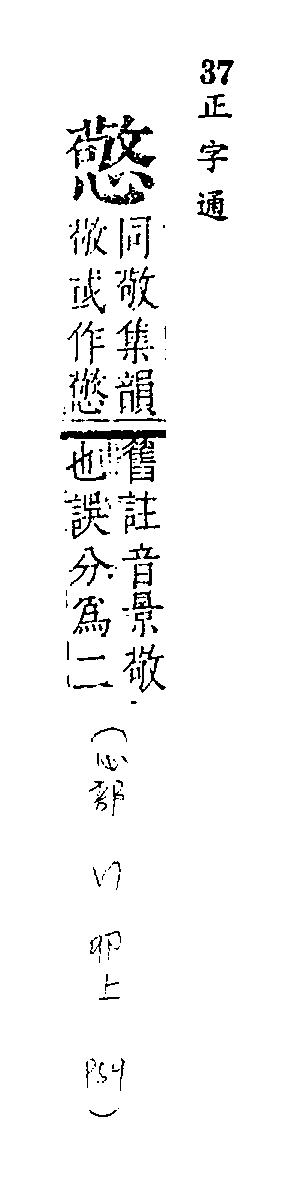 37正字通
憼
同敬集韻
敬或作憼
舊註音景敬
也誤分爲二
(心部 卯上 P54)